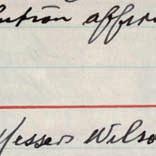 ution affir
Messers Wilso